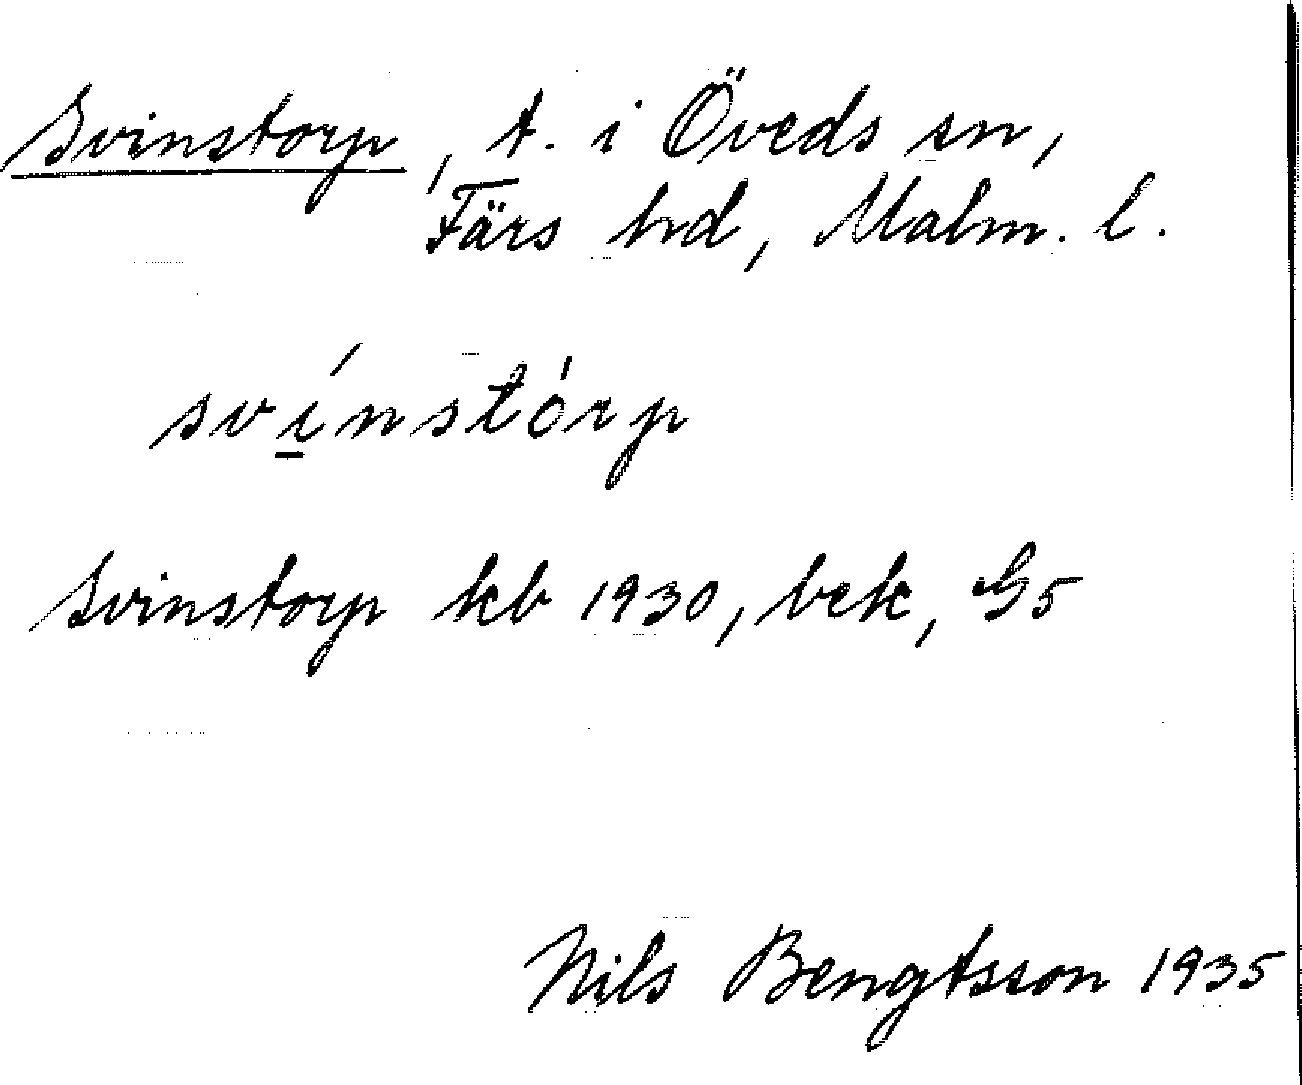 Svinstorp, t. i Öveds sn,
Färs hd, Malm. l.
sví̲nstórp
Svinstorp kb 1930, bek, G5
Nils Bengtsson 1935